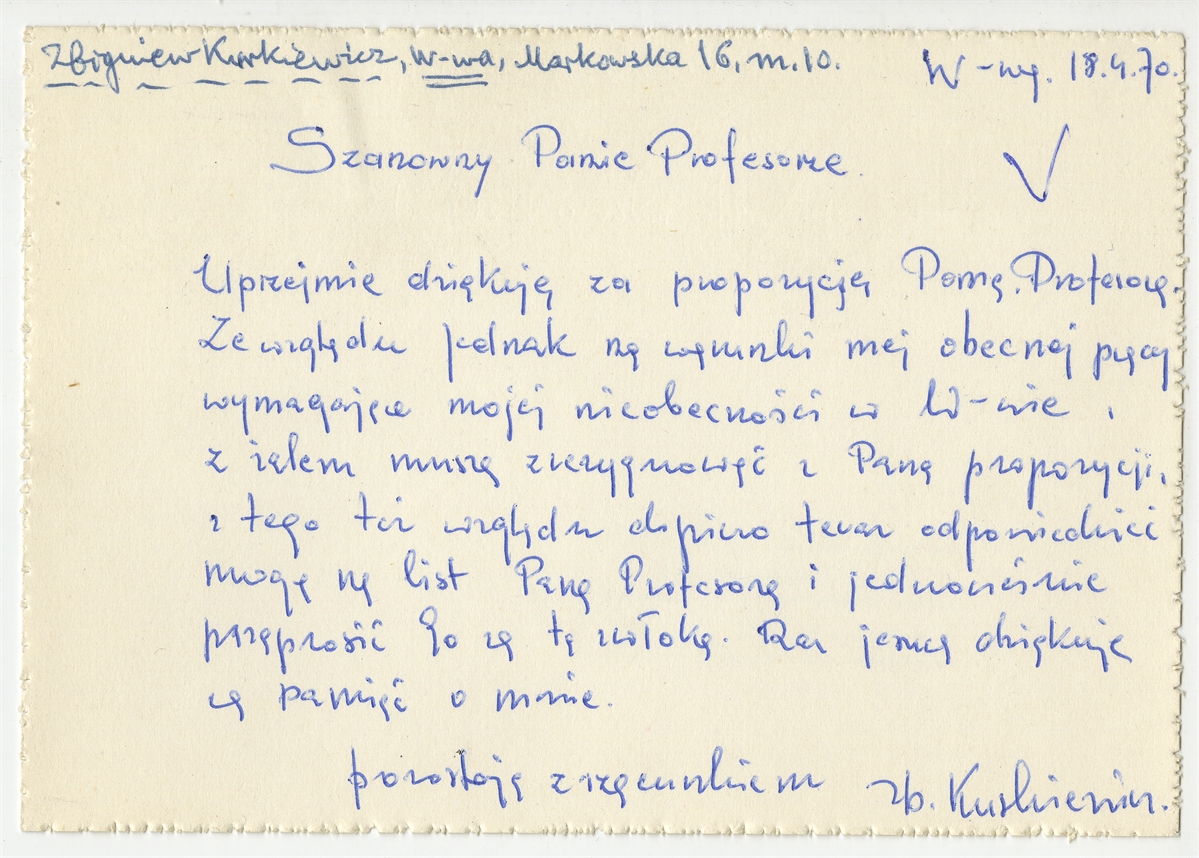 Zbigniew Kurkiewicz, W-wa, Markowska 16, m. 10.
W-wa. 18.4.70.
Szanowny Panie Profesorze.
Uprzejmie dziękuję za propozycję Pana Profesora.
Ze względu jednak na warunki mej obecnej pracy
wymagające mojej nieobecności w W-wie,
z żalem muszę zrezygnować z Pana propozycji.
z tego też względu dopiero teraz odpowiedzieć
mogę na list Pana Profesora i jednocześnie
przeprosić Go za tę zwłokę. Raz jeszcze dziękuję
za pamięć o mnie.
pozostaję z szacunkiem Zb. Kurkiewicz.